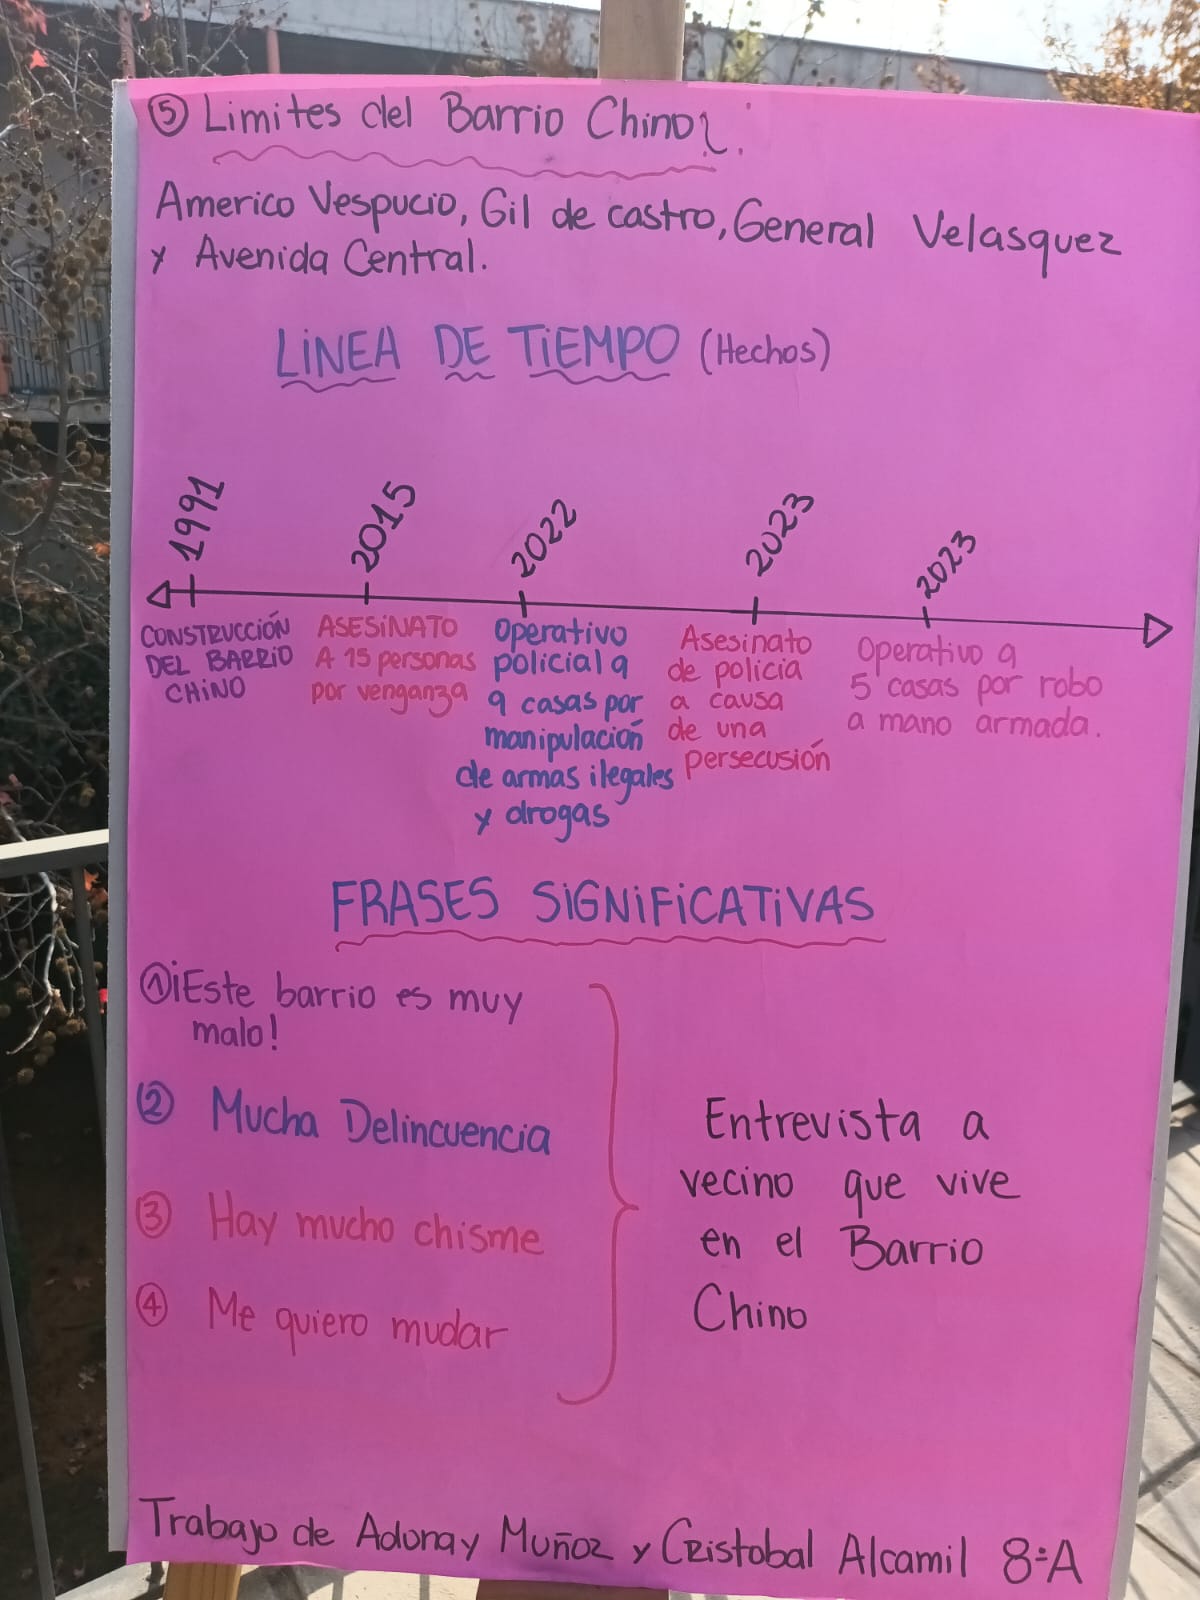 ⑤ Limites del Barrio Chino?:
Americo Vespucio, Gil de castro, General Velasquez
y Avenida Central.
LiNEA DE TiEMPO (Hechos)
1991
2015
2022
2023
2023
CONSTRUCCIÓN
DEL BARRIO
CHiNO
ASESiNATO
A 15 personas
por venganza
Operativo
policial a
9 casas por
manipulación
de armas ilegales
y drogas
Asesinato
de policia
a causa
de una
persecusión
Operativo a
5 casas por robo
a mano armada.
FRASES SiGNiFiCATiVAS
① ¡Este barrio es muy
malo!
② Mucha Delincuencia
③ Hay mucho chisme
④ Me quiero mudar
Entrevista a
vecino que vive
en el Barrio
Chino
Trabajo de Adonay Muñoz y Cristobal Alcamil 8ºA